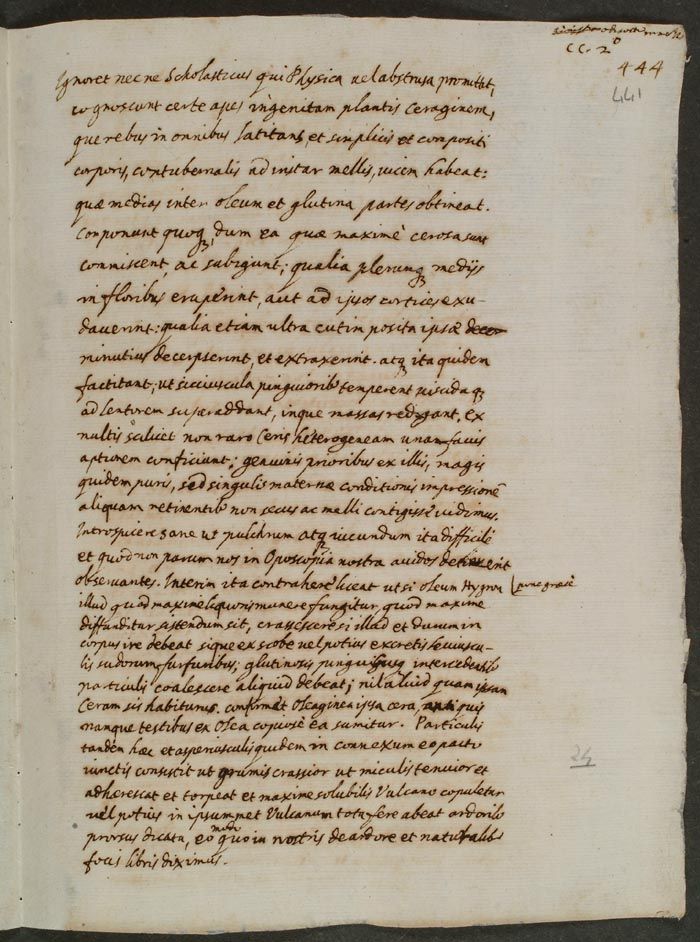 CC. 2
444
441
Ignoret necne Scholasticus qui Physica vel abstrusa promittat,
cognoscunt certe apes ingenitam plantis Ceraginem,
que rebus in omnibus latitans, et simplicis et compositi
corporis, contubernalis ad instar mellis, vicem habeat:
quæ medias inter oleum et glutina partes obtineat.
Componunt quoq, dum ea quæ maximè cerosa sunt
commiscent, ac subigunt; qualia plerunq medijs
in floribus eruperint, aut ad ipsos cortices exu-
daverint: qualia etiam ultra cutim posita ipsæ
minutius decerpserint, et extraxerint. atq ita quidem
factitant, ut sicciuscula pinguiorib temperent viscida q
ad lentorem superaddant, inque massas redigant. ex
multis scilicet non raro Ceris heterogeneam unam favis
aptiorem conficiunt; genuinis prioribus ex illis, magis
quidem puris, sed singulis maternæ conditionis impressionē
aliquam retinentib non secus ac melli contigisse vidimus.
Introspicere sane ut pulchrum atq iucundum ita difficile
et quod non parum nos in Oposcopia nostra avidos
observantes. Interim ita contrahere liceat ut si oleum Hygron | pone græcè
illud quod maxime liquoris munere fungitur, quod maxime
diffunditur sistendum sit, crassescere si illud et durum in
corpus ire debeat sique ex scobe vel potius excretis leviuscu-
lis sudorum furfuribus; glutinosis intercedentib
particulis coalescere aliquid debeat; nil aliud quam ipsam
Ceram sis habiturus. confirmat Oleaginea ipsa cera, quis
nanque testibus ex Olea copiose ea sumitur. Particulis
tandem hæc et asperiusculis quidem in connexum eo pacto
iunctis consistit ut grumis crassior ut miculis tenuior et
adhærescat et torpeat et maxime solubilis Vulcano copuletur
vel potius in ipsummet Vulcanum tota fere abeat ardorib
prorsus dicata, eo modo quo in nostris de ardore et naturalib
focis libris diximus.
24